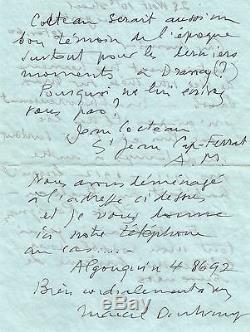 Cocteau serait aussi un
bon témoin de l'époque
surtout pour les derniers
moments à Drancy (?)
Pourquoi ne lui écrivez
vous pas?
Jean Cocteau
St Jean Cap-Ferrat
A.M.
Nous avons déménagé
à l'adresse ci dessus
et je vous donne
ici notre téléphone
au cas ——
ALgonquin 4 8692
Bien cordialement
Marcel Duchamp